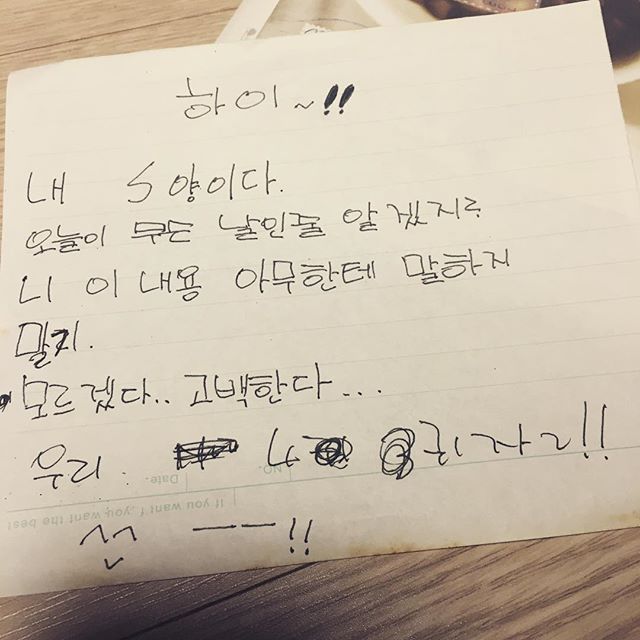 하이~!!
내 S양이다.
오늘이 무슨 날인줄 알겠지?
니 이 내용 아무한테 말하지
말지.
모르겠다.. 고백한다...
우리 ㅅ 귀자!!
Date.
No.
If you want the best